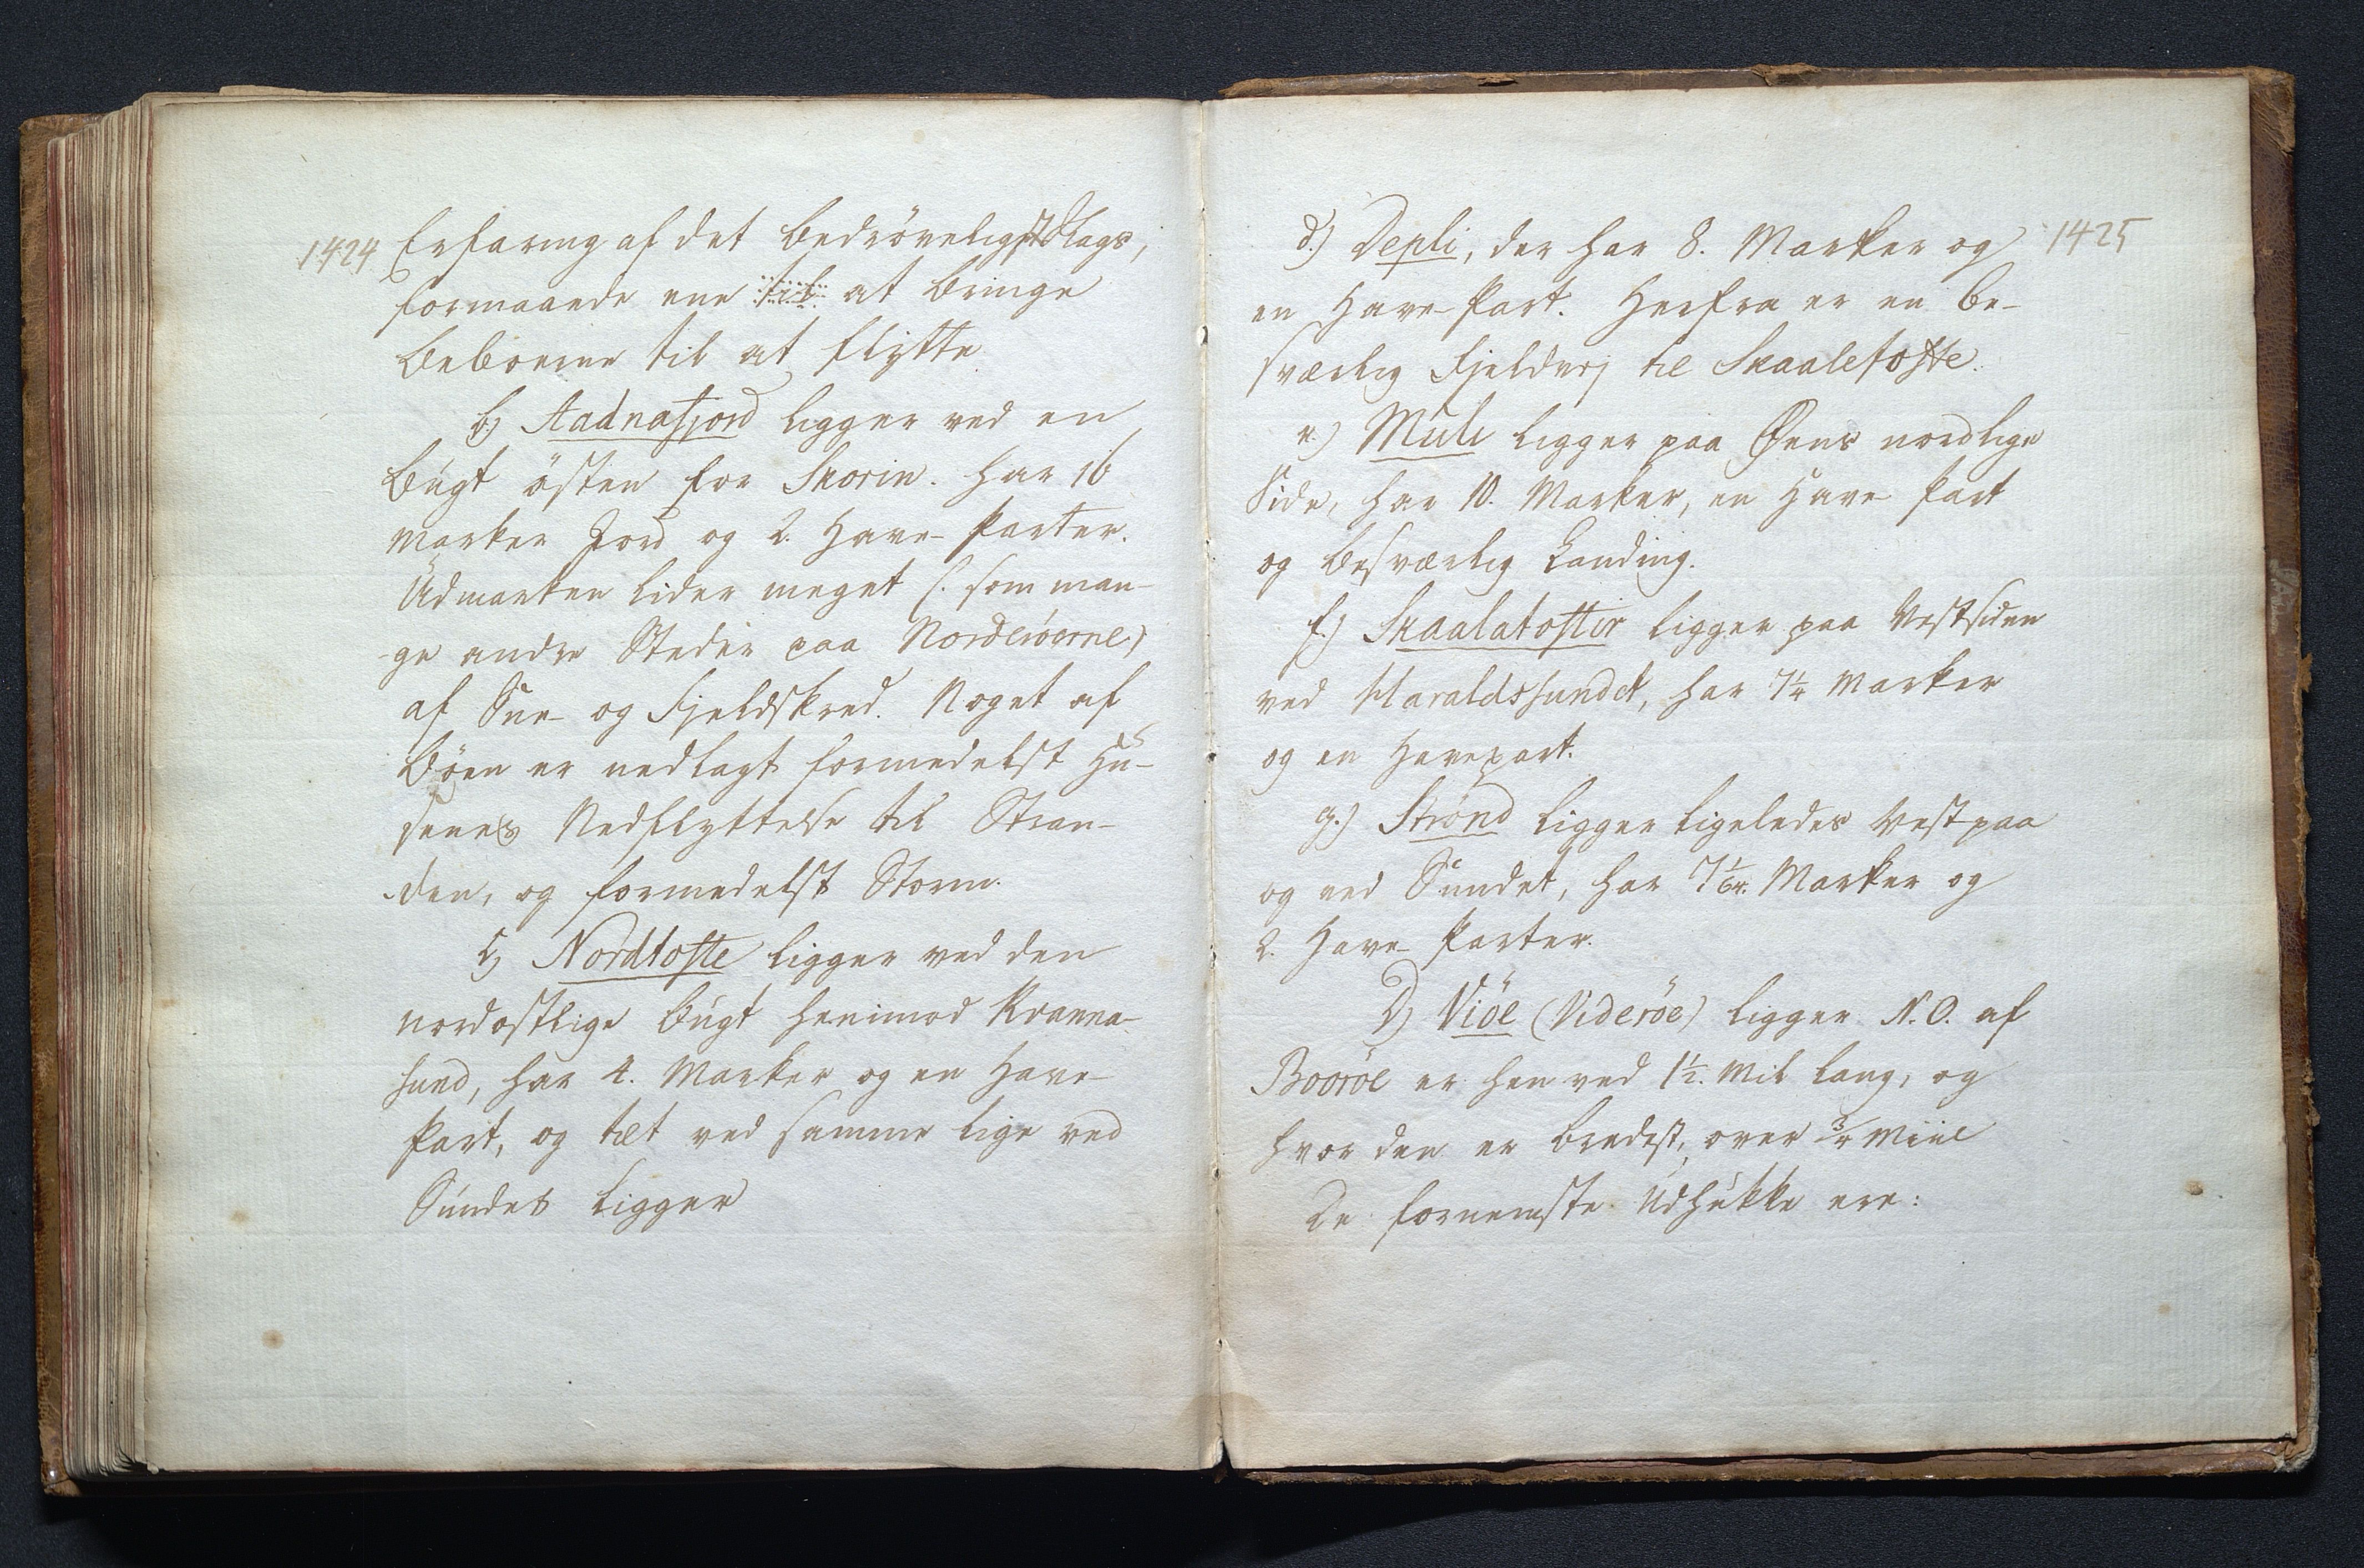 1424
Erfaring af det bedröveligste Slags,
formaaede ene at bringe
Beboerne til at flytte
b) Aadnafjord ligger ved en
Bugt östen for Skorin. Har 16
Marker Jord og 2. Have-Parter.
Udmarken lider meget (: som man-
ge andre Steder paa Norderöerne)
af Snee- og Fjeldskred. Noget af
Böen er nedlagt formedelst Hu-
senes Nedflyttelse til Stran-
den, og formedelst Storm.
c) Nordtofte ligger ved den
nordostlige Bugt henimod Kvanna-
sund, har 4. Marker og en Have-
Part, og tæt ved samme lige ved
Sundet ligger
1425
d.) Depli, der har 8. Marker og
en Have-Part. Herfra er en be-
sværlig Fjeldvej til Skaaletofte.
e.) Muli ligger paa Øens nordlige
Side, har 10. Marker, en Have Part
og besværlig Landing.
f.) Skaalatoftir ligger paa Vestsiden
ved Haraldssundet, har 7¼ Marker
og en Havepart.
g.) Strönd ligger ligeledes Vestpaa
og ved Sundet, har 7 Marker og
2. Have-Parter.
D) Viöe (Videröe) ligger N.O. af
Booröe er henved 1½. Mil lang, og
hvor den er bredest, over ¾ Miil
De fornemste Udhukke ere: